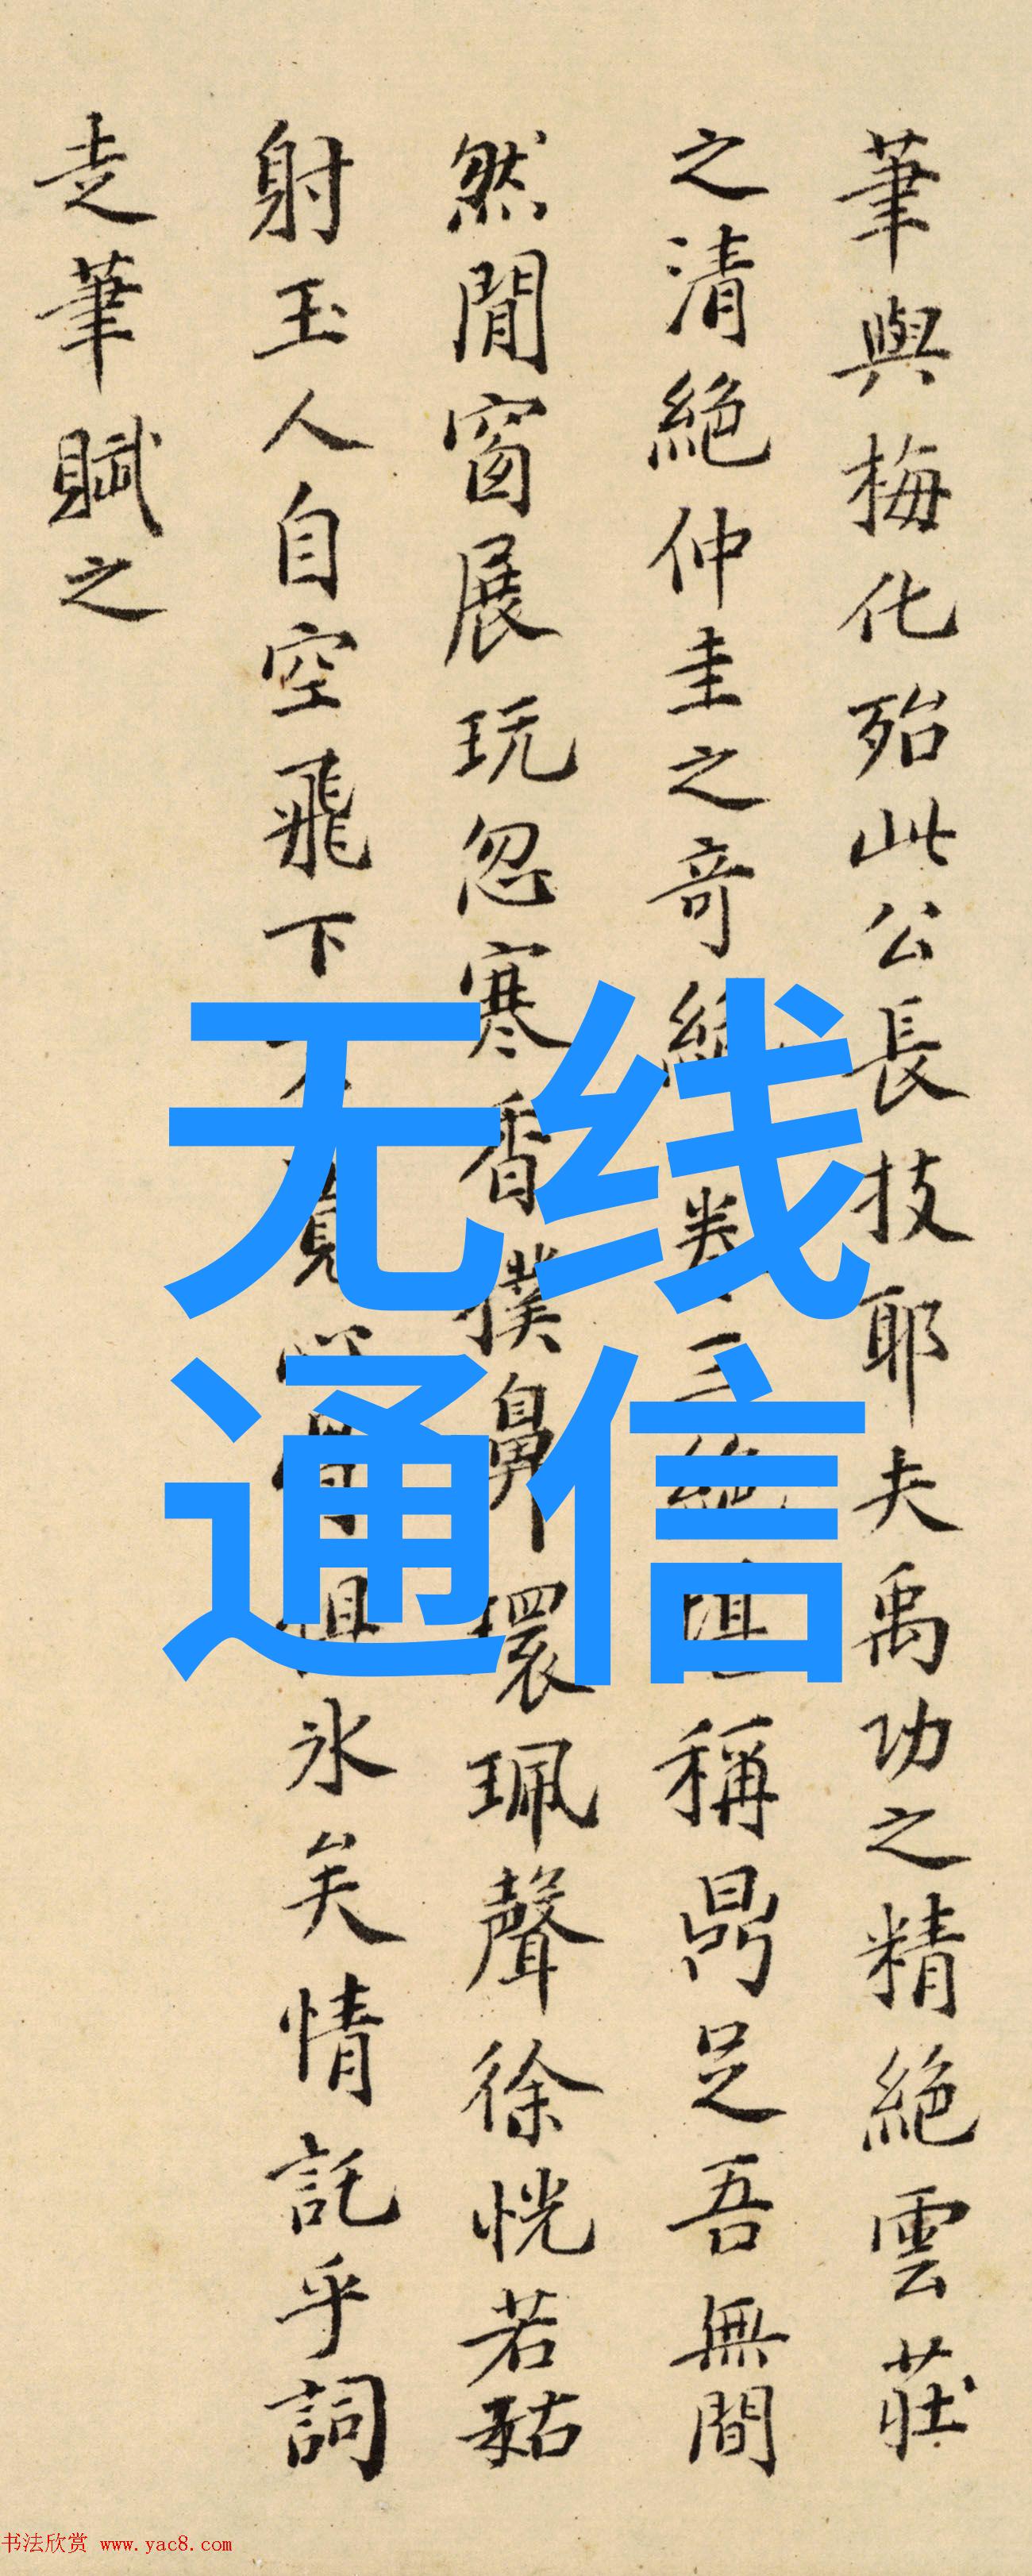 筆與梅化殆此公長技耶夫禹功之精絕雲莊
之清絕仲圭之奇絕卷三絕稱鼎足吾無間
然閒窗展玩忽寒香撲鼻環珮聲徐恍若𫆏
射玉人自空飛下覺冰矣情託乎詞
走筆賦之
无线
通信
书法欣赏 www.yac8.com